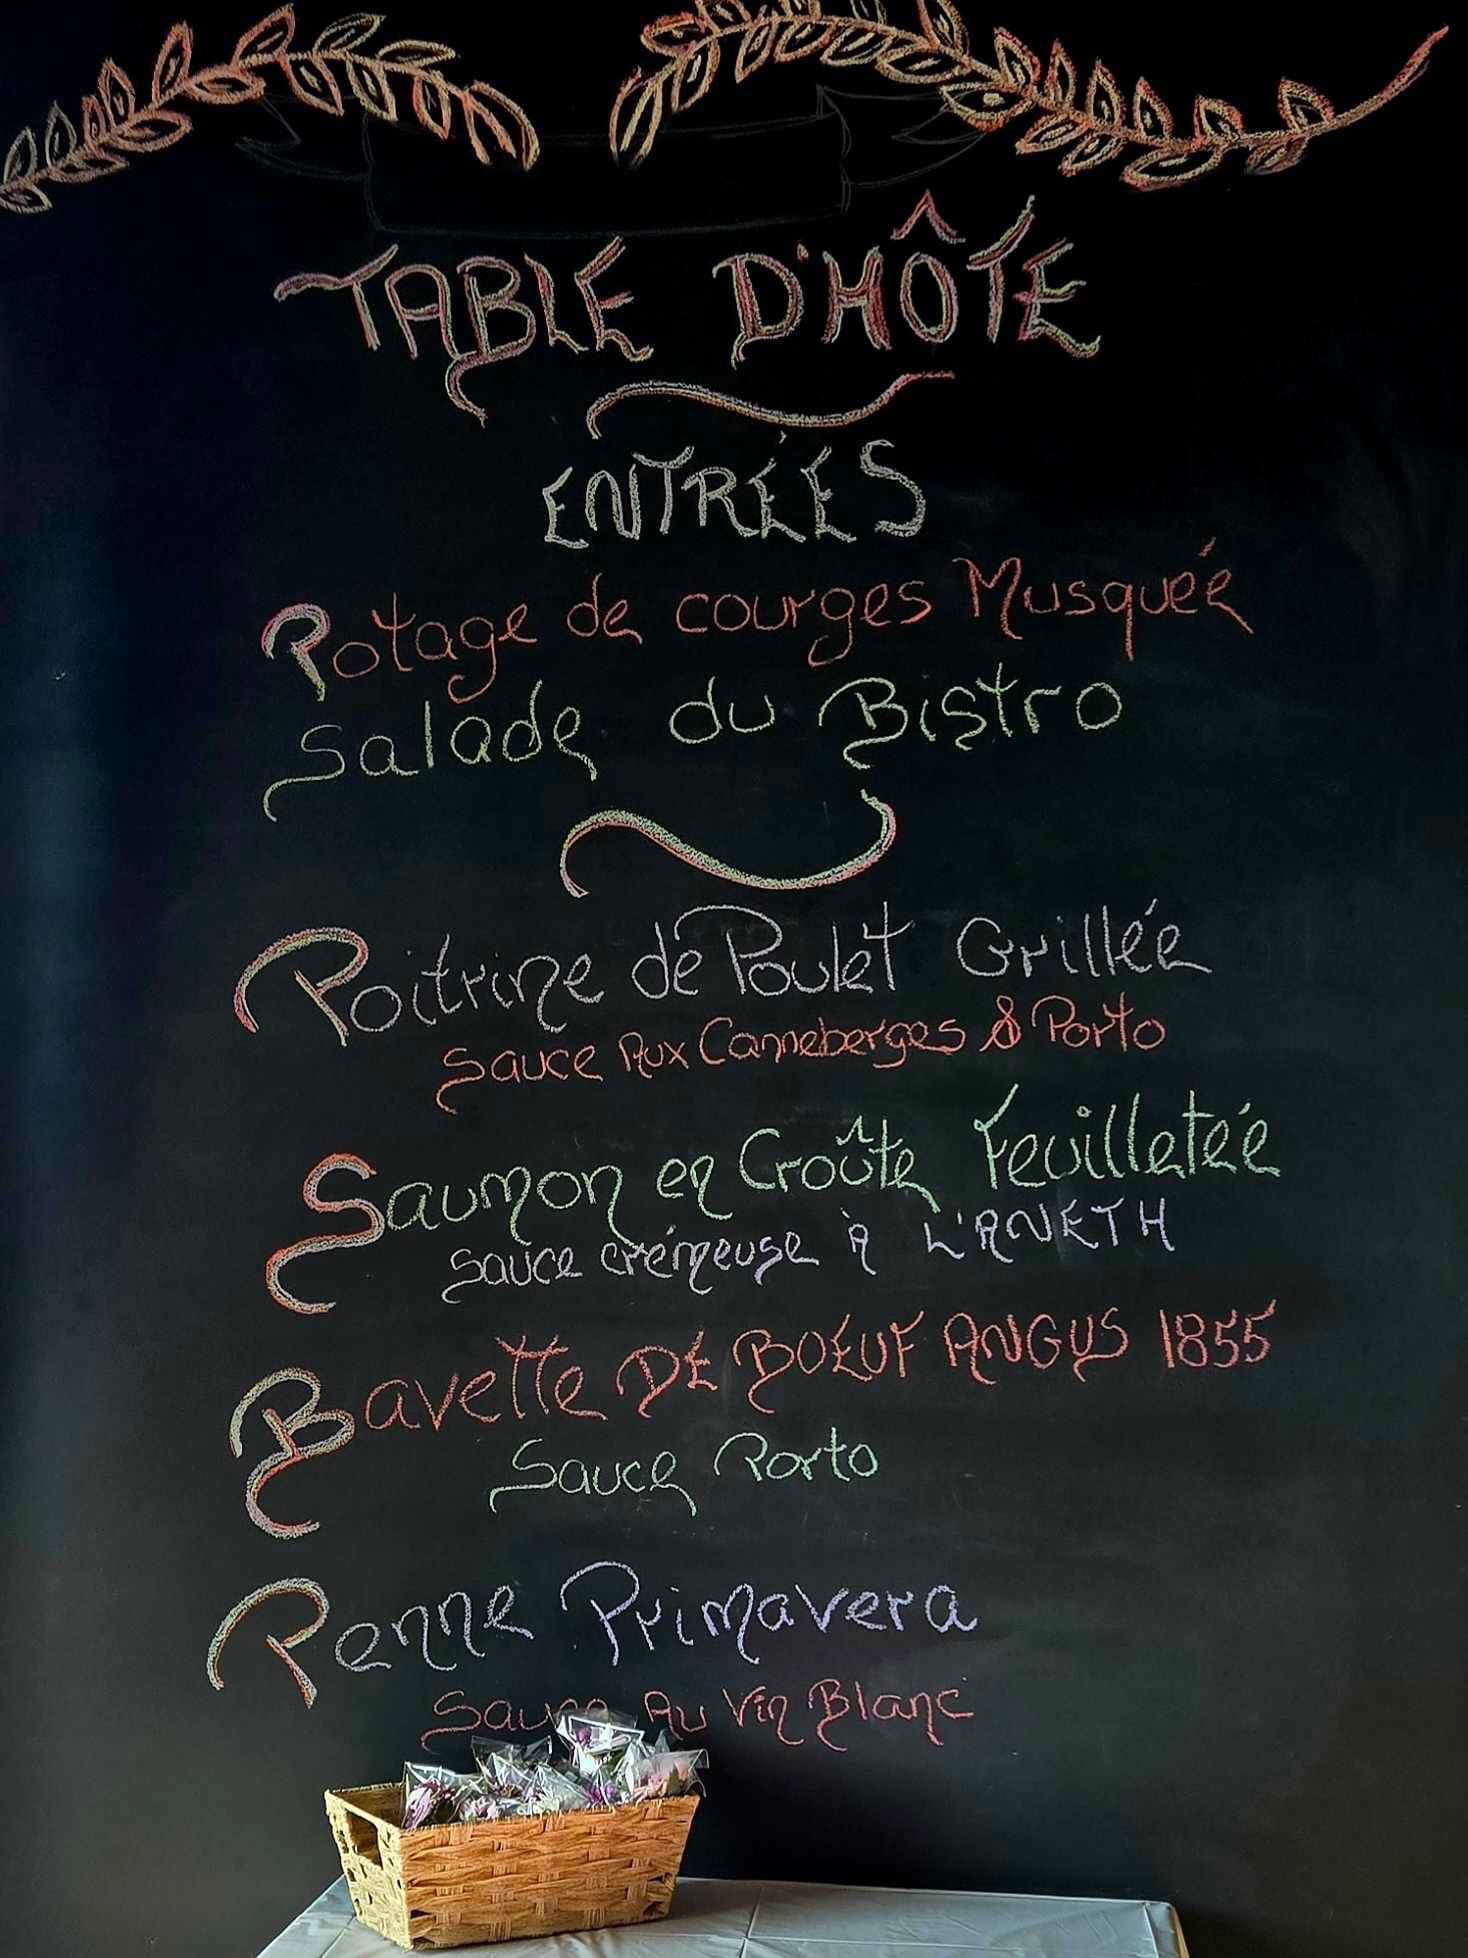 TABLE D'HÔTE
ENTRÉES
Potage de courges Musqueé
Salade du Bistro
Poitrine de Poulet Grillée
Sauce Aux Canneberges & Porto
Saumon en Croûte Feuilletée
Sauce crémeuse À L'ANETH
Bavette DE BOEUF ANGUS 1855
Sauce Porto
Penne Primavera
Sauce Au Vin Blanc